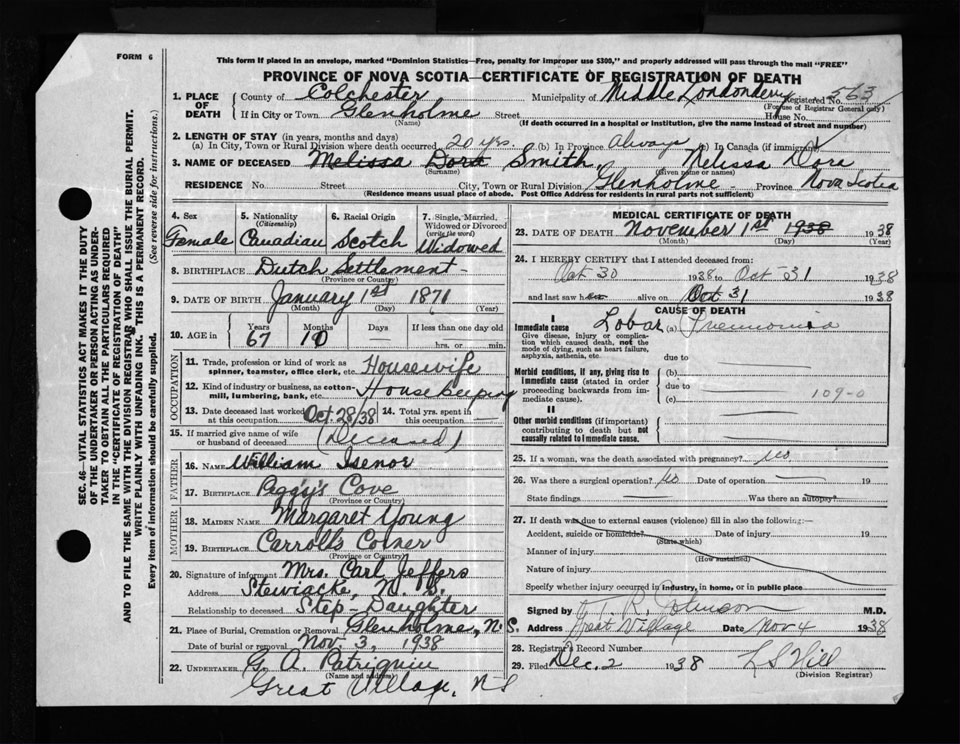 FORM 6
This form if placed in an envelope, marked "Dominion Statistics—Free, penalty for improper use $300," and properly addressed will pass through the mail "FREE"
PROVINCE OF NOVA SCOTIA—CERTIFICATE OF REGISTRATION OF DEATH
1. PLACE OF DEATH County of Colchester Municipality of Middle Londonderry Registered No. 563
(For use of Registrar General only)
If in City or Town Glenholme Street House No.
(Name) (If death occurred in a hospital or institution, give the name instead of street and number)
2. LENGTH OF STAY (in years, months and days)
(a) In City, Town or Rural Division where death occurred 20 yrs. (b) In Province Always (c) In Canada (if immigrant)
3. NAME OF DECEASED Melissa Dora Smith, Melissa Dora
(Surname) (Given name or names)
RESIDENCE No. Street City, Town or Rural Division Glenholme - Province Nova Scotia
(Residence means usual place of abode. Post Office Address for residents in rural parts not sufficient)
4. Sex Female
5. Nationality (Citizenship) Canadian
6. Racial Origin Scotch
7. Single, Married, Widowed or Divorced (write the word) Widowed
8. BIRTHPLACE Dutch Settlement -
(Province or Country)
9. DATE OF BIRTH January 1st 1871
(Month) (Day) (Year)
10. AGE in Years 67 Months 10 Days — If less than one day old
hrs. or min.
OCCUPATION
11. Trade, profession or kind of work as spinner, teamster, office clerk, etc. Housewife
12. Kind of industry or business, as cotton-mill, lumbering, bank, etc. Housekeeping
13. Date deceased last worked at this occupation Oct 28/38 14. Total yrs. spent in this occupation
15. If married give name of wife or husband of deceased (Deceased)
FATHER
16. NAME William Isenor
17. BIRTHPLACE Peggy's Cove
(Province or Country)
MOTHER
18. MAIDEN NAME Margaret Young
19. BIRTHPLACE Carrolls Corner
(Province or Country)
20. Signature of informant Mrs. Carl Jeffers
Address Stewiacke, N. S.
Relationship to deceased Step-Daughter
21. Place of Burial, Cremation or Removal Glenholme, N.S.
Date of burial or removal Nov. 3, 1938
22. UNDERTAKER G. A. Patriquin
(Name and address)
Great Village, NS
MEDICAL CERTIFICATE OF DEATH
23. DATE OF DEATH November 1st 1938 1938
(Month) (Day) (Year)
24. I HEREBY CERTIFY that I attended deceased from:
Oct 30 1938 to Oct 31 1938
and last saw her alive on Oct 31 1938
CAUSE OF DEATH
I
Immediate cause Lobar (a) Pneumonia
Give disease, injury or complication which caused death, not the mode of dying, such as heart failure, asphyxia, asthenia, etc.
due to
Morbid conditions, if any, giving rise to immediate cause (stated in order proceeding backwards from immediate cause).
(b)
due to
(c) 109-0
II
Other morbid conditions (if important) contributing to death but not causally related to immediate cause.
25. If a woman, was the death associated with pregnancy? No
26. Was there a surgical operation? No Date of operation — 19
State findings — Was there an autopsy?
27. If death was due to external causes (violence) fill in also the following:—
Accident, suicide or homicide? Date of injury 19
(State which)
Manner of injury
(How sustained)
Nature of injury
Specify whether injury occurred in industry, in home, or in public place
Signed by T. R. Johnson M.D.
Address Great Village Date Nov 4 1938
28. Registrar's Record Number
29. Filed Dec. 2 1938 L S Hill
(Division Registrar)
SEC. 46—VITAL STATISTICS ACT MAKES IT THE DUTY
OF THE UNDERTAKER OR PERSON ACTING AS UNDER-
TAKER TO OBTAIN ALL THE PARTICULARS REQUIRED
IN THE "CERTIFICATE OF REGISTRATION OF DEATH"
AND TO FILE THE SAME WITH THE DIVISION REGISTRAR WHO SHALL ISSUE THE BURIAL PERMIT.
WRITE PLAINLY WITH UNFADING INK. THIS IS A PERMANENT RECORD.
Every item of information should be carefully supplied. (See reverse side for instructions.)